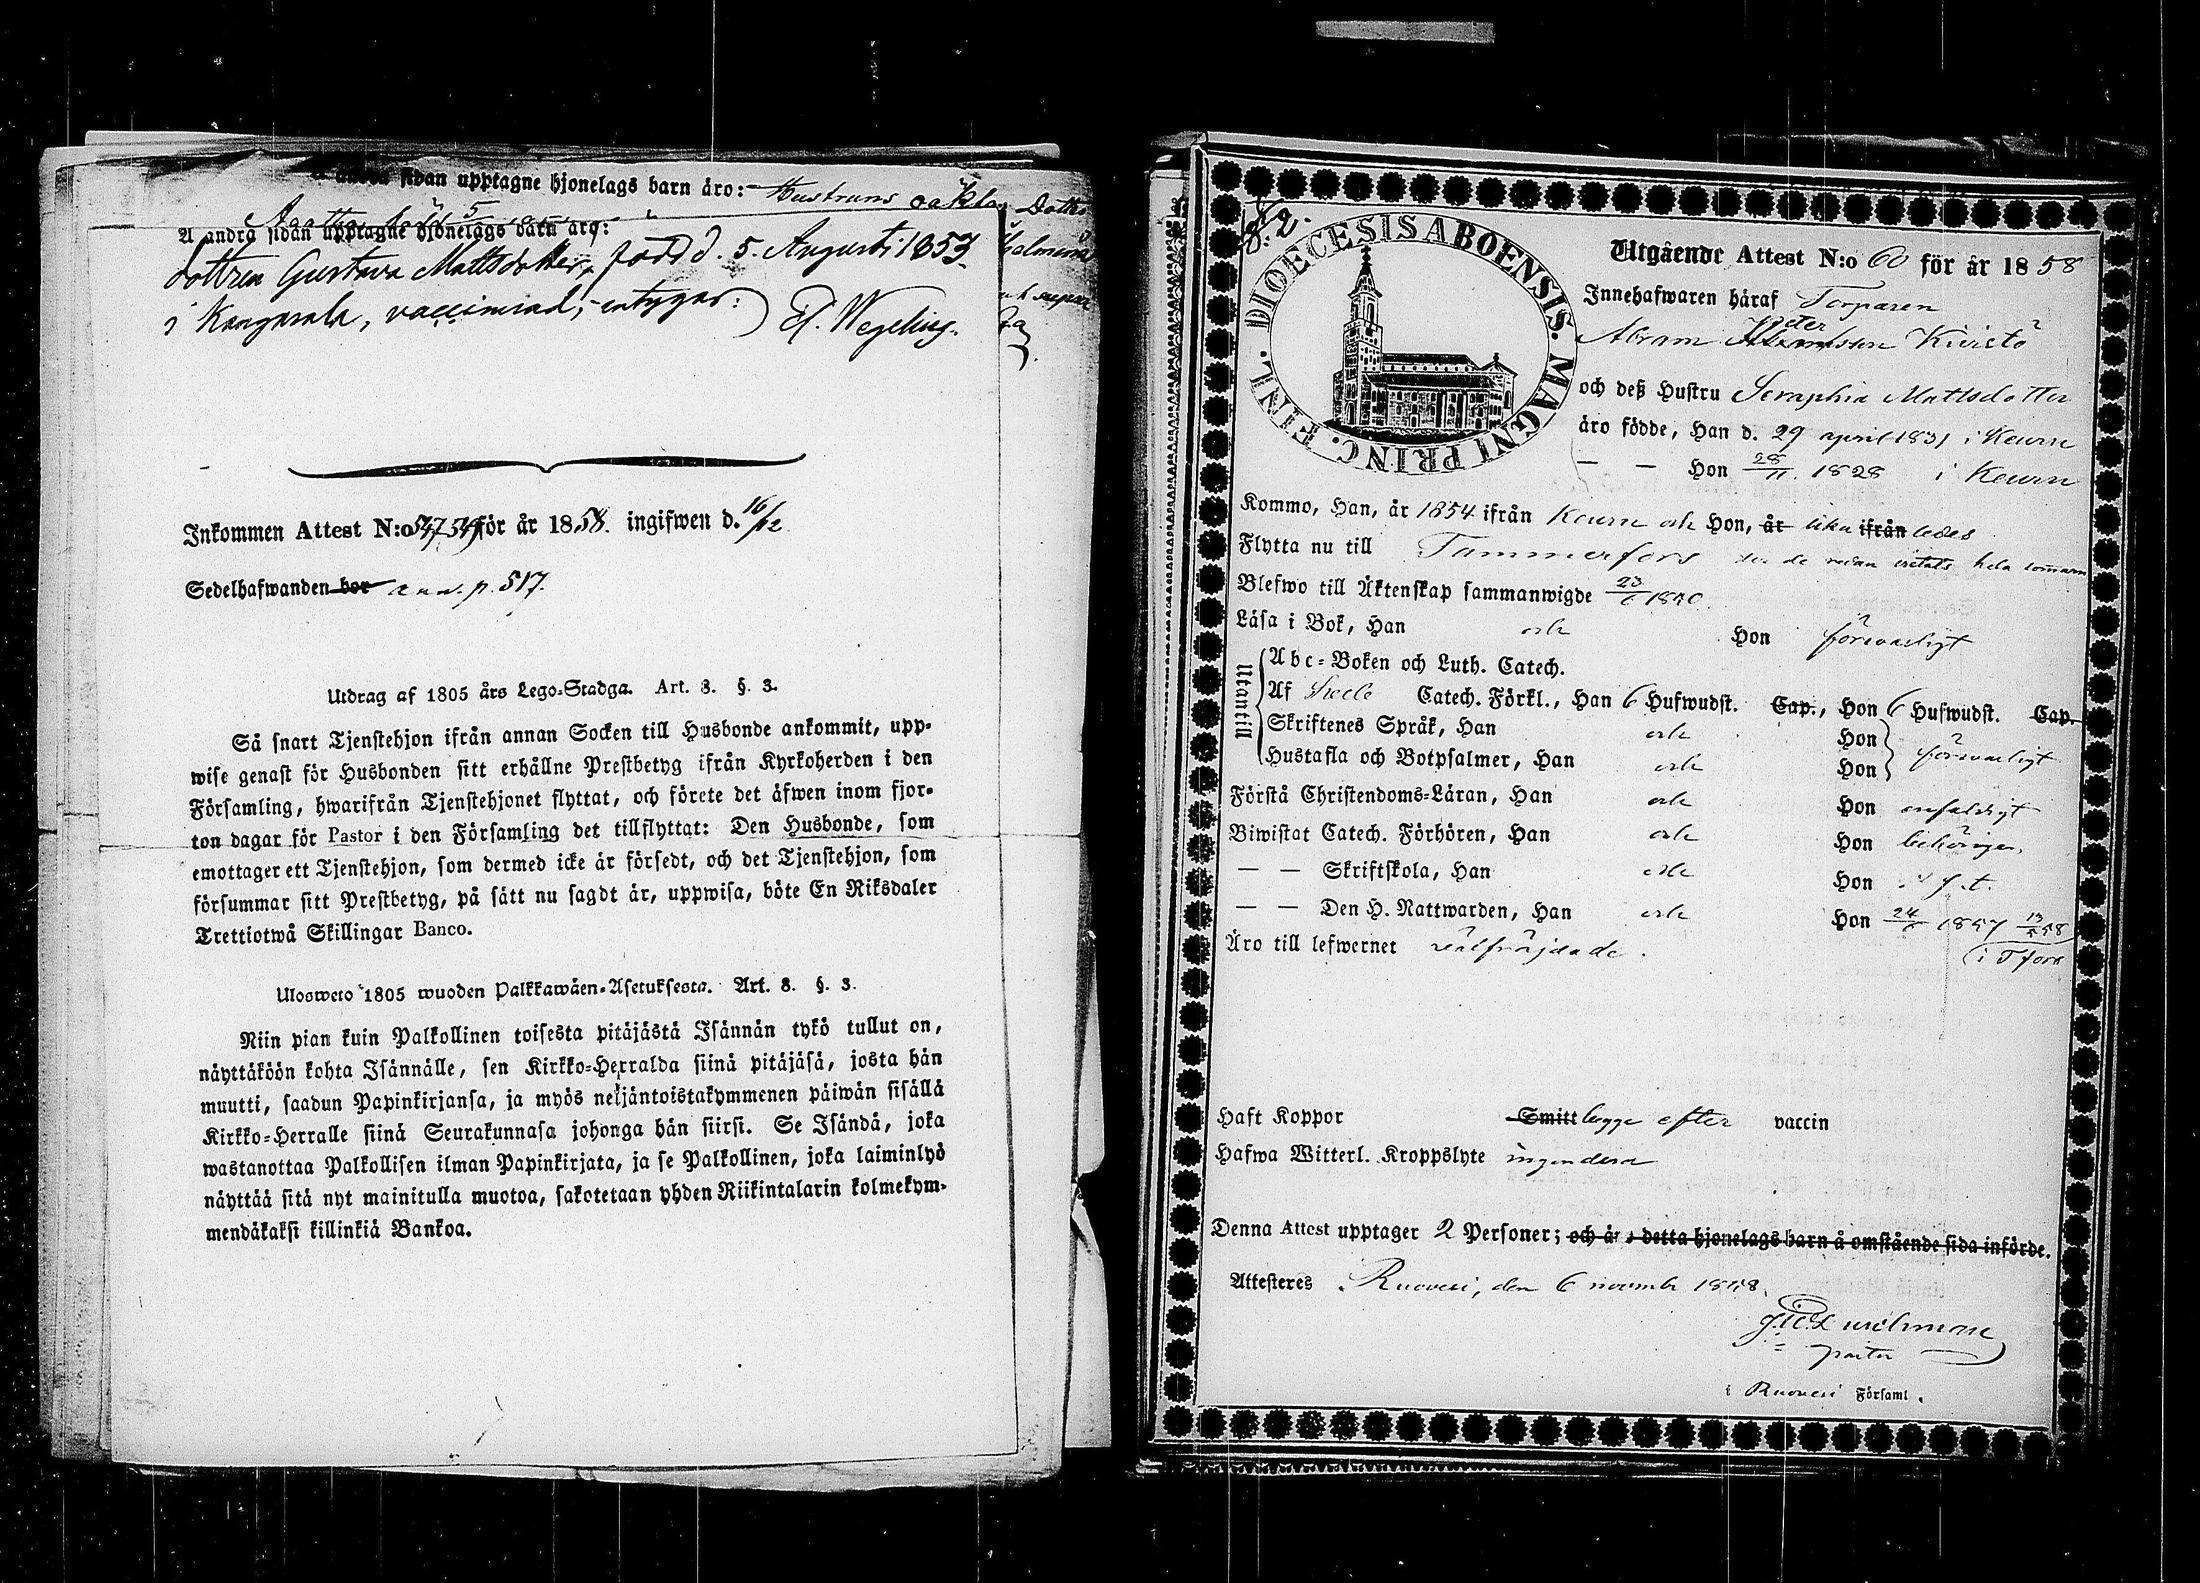 sidan upptagne hjonelags barn äro: Hustruns oäkta Dotter
Agatha född 5
Å andra sidan upptagne hjonelags barn äro:
dottren Gustava Mattsdotter, född d. 5. Augusti 1853.
i Kangasala, vaccinerad, intygar: Ef. Wegelius.
Inkommen Attest N:o 547-549 för år 1858. ingifwen d. 16/12
Sedelhafwanden bor p. 517.
Utdrag af 1805 års Lego-Stadga. Art. 3. §. 3.
Så snart Tjenstehjon ifrån annan Socken till Husbonde ankommit, upp-
wise genast för Husbonden sitt erhållne Prestbetyg ifrån Kyrkoherden i den
Församling, hwarifrån Tjenstehjonet flyttat, och förete det äfwen inom fjor-
ton dagar för Pastor i den Församling det tillflyttat: Den Husbonde, som
emottager ett Tjenstehjon, som dermed icke är försedt, och det Tjenstehjon, som
försummar sitt Prestbetyg, på sätt nu sagdt är, uppwisa, böte En Riksdaler
Trettiotwå Skillingar Banco.
Ulosweto 1805 wuoden Palkkawäen-Asetuksesta. Art. 3. §. 3.
Niin pian kuin Palkollinen toisesta pitäjästä Isännän tykö tullut on,
näyttäköön kohta Isännälle, sen Kirkko-Herralda siinä pitäjäsä, josta hän
muutti, saadun Papinkirjansa, ja myös neljäntoistakymmenen päiwän sisällä
Kirkko-Herralle siinä Seurakunnasa johonga hän siirsi. Se Isändä, joka
wastanottaa Palkollisen ilman Papinkirjata, ja se Palkollinen, joka laiminlyö
näyttää sitä nyt mainitulla muotoa, sakotetaan yhden Riikintalarin kolmekym-
mendäkaksi killinkiä Bankoa.
DIOECESIS ABOENSIS. MAGNI PRINC. FINL.
Utgående Attest N:o 60 för år 1858
Innehafwaren häraf Torparen
Abram Peter Abramsson Kivistö
och deß Hustru Seraphia Mattsdotter
äro födde, Han d. 29 april 1831 i Keuru
— — Hon 28/11. 1828 i Keuru
Kommo, Han, år 1854 ifrån Keuru och Hon, år lika ifrån ledes
Flytta nu till Tammerfors der de redan vistats hela sommaren
Blefwo till Äktenskap sammanwigde 23/6 1850.
Läsa i Bok, Han och Hon försvarligt
Utantill
Abc-Boken och Luth. Catech.
Af Catech. Förkl., Han 6 Hufwudst. Cap., Hon 6 Hufwudst. Cap.
Skriftenes Språk, Han och Hon
Hustafla och Botpsalmer, Han och Hon försvarligt
Förstå Christendoms-Läran, Han och Hon enfaldigt
Biwistat Catech. Förhören, Han och Hon behörigen,
— — Skriftskola, Han och Hon
— — Den H. Nattwarden, Han och Hon 24/6 1857 58
(i Tfors
Äro till lefwernet välfräjdade.
Haft Koppor Smitt begge efter vaccin
Hafwa Witterl. Kroppslyte ingendera
Denna Attest upptager 2 Personer; och äro detta hjonelags barn å omstående sida införde.
Attesteres Ruovesi, den 6 novembr 1858.
pastor
i Ruovesi Församl.